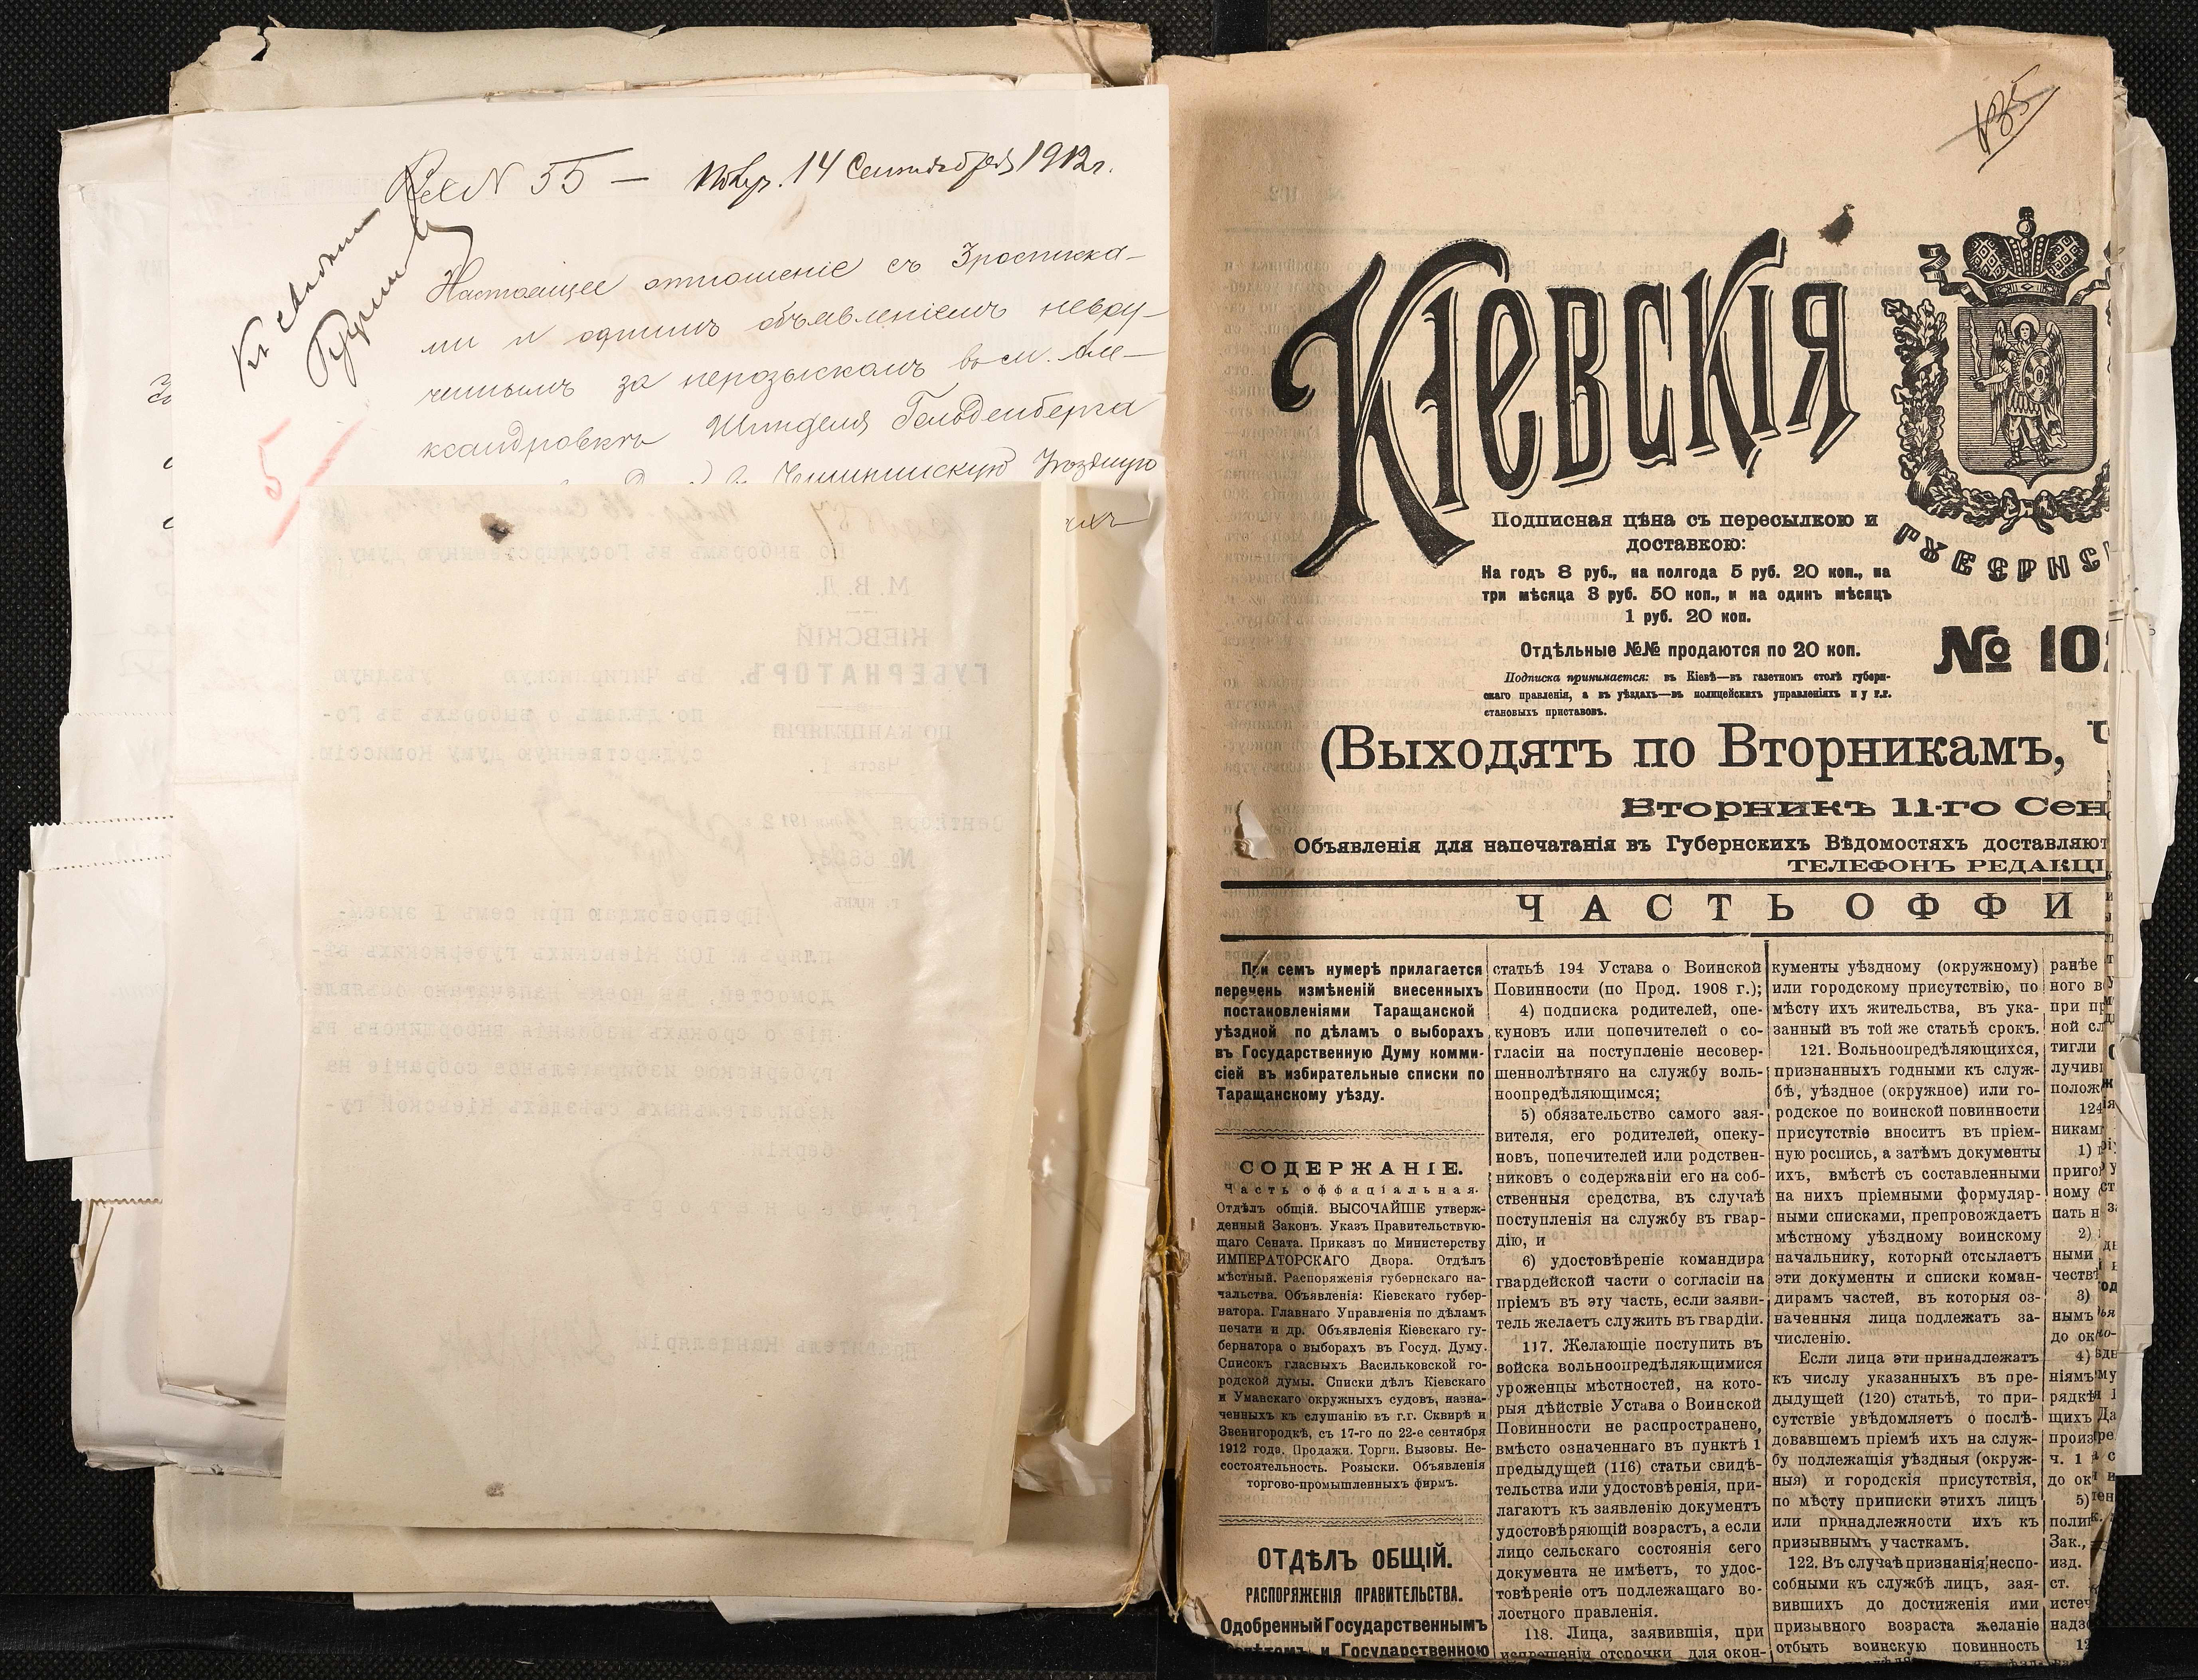 № 55 — 14 Сентября 1912 г.
Къ свѣдѣнію
Настоящее отношеніе съ 3 росписка-
ми и однимъ объявленіемъ невру-
ченнымъ за нерозыскомъ въ м. Але-
ксандровкѣ Гольденберга
въ Чигиринскую Уѣздную
5
По выборамъ въ Государственную Думу.
М. В. Д.
КІЕВСКІЙ
ГУБЕРНАТОРЪ.
ПО КАНЦЕЛЯРІИ
Часть 1.
Сентября 1912
№
г. КІЕВЪ.
Въ Чигиринскую уѣздную
по дѣламъ о выборахъ въ Го-
сударственную Думу Комиссію.
Препровождаю при семъ I экзем-
пляръ № 102 Кіевскихъ Губернскихъ Вѣ-
домостей, въ коемъ напечатано объявле-
ніе о срокахъ избранія выборщиковъ въ
губернское избирательное собраніе на
избирательныхъ съѣздахъ Кіевской гу-
берніи.
Губернаторъ
Правитель Канцеляріи
135
КІЕВСКІЯ
ГУБЕРНС
Подписная цѣна съ пересылкою и
доставкою:
На годъ 8 руб., на полгода 5 руб. 20 коп., на
три мѣсяца 3 руб. 50 коп., и на одинъ мѣсяцъ
1 руб. 20 коп.
Отдѣльные №№ продаются по 20 коп.
Подписка принимается: въ Кіевѣ—въ газетномъ столѣ губерн-
скаго правленія, а въ уѣздахъ—въ полицейскихъ управленіяхъ и у г.г.
становыхъ приставовъ.
№ 102
(Выходятъ по Вторникамъ, Ч
Вторникъ 11-го Сен
Объявленія для напечатанія въ Губернскихъ Вѣдомостяхъ доставляют
ТЕЛЕФОНЪ РЕДАКЦІ
ЧАСТЬ ОФФИ
При семъ нумерѣ прилагается
перечень измѣненій внесенныхъ
постановленіями Таращанской
уѣздной по дѣламъ о выборахъ
въ Государственную Думу комми-
сіей въ избирательные списки по
Таращанскому уѣзду.
СОДЕРЖАНІЕ.
Часть оффиціальная.
Отдѣлъ общій. ВЫСОЧАЙШЕ утверж-
денный Законъ. Указъ Правительствую-
щаго Сената. Приказъ по Министерству
ИМПЕРАТОРСКАГО Двора. Отдѣлъ
мѣстный. Распоряженія губернскаго на-
чальства. Объявленія: Кіевскаго губер-
натора. Главнаго Управленія по дѣламъ
печати и др. Объявленія Кіевскаго гу-
бернатора о выборахъ въ Госуд. Думу.
Списокъ гласныхъ Васильковской го-
родской думы. Списки дѣлъ Кіевскаго
и Уманскаго окружныхъ судовъ, назна-
ченныхъ къ слушанію въ г.г. Сквирѣ и
Звенигородкѣ, съ 17-го по 22-е сентября
1912 года. Продажи. Торги. Вызовы. Не-
состоятельность. Розыски. Объявленія
торгово-промышленныхъ фирмъ.
ОТДѢЛЪ ОБЩІЙ.
РАСПОРЯЖЕНІЯ ПРАВИТЕЛЬСТВА.
Одобренный Государственнымъ
Совѣтомъ и Государственною
статьѣ 194 Устава о Воинской
Повинности (по Прод. 1908 г.);
4) подписка родителей, опе-
куновъ или попечителей о со-
гласіи на поступленіе несовер-
шеннолѣтняго на службу воль-
ноопредѣляющимся;
5) обязательство самого зая-
вителя, его родителей, опеку-
новъ, попечителей или родствен-
никовъ о содержаніи его на соб-
ственныя средства, въ случаѣ
поступленія на службу въ гвар-
дію, и
6) удостовѣреніе командира
гвардейской части о согласіи на
пріемъ въ эту часть, если заяви-
тель желаетъ служить въ гвардіи.
117. Желающіе поступить въ
войска вольноопредѣляющимися
уроженцы мѣстностей, на кото-
рыя дѣйствіе Устава о Воинской
Повинности не распространено,
вмѣсто означеннаго въ пунктѣ 1
предыдущей (116) статьи свидѣ-
тельства или удостовѣренія, при-
лагаютъ къ заявленію документъ
удостовѣряющій возрастъ, а если
лицо сельскаго состоянія сего
документа не имѣетъ, то удос-
товѣреніе отъ подлежащаго во-
лостного правленія.
118. Лица, заявившія, при
испрошеніи отсрочки для окон-
кументы уѣздному (окружному)
или городскому присутствію, по
мѣсту ихъ жительства, въ ука-
занный въ той же статьѣ срокъ.
121. Вольноопредѣляющихся,
признанныхъ годными къ служ-
бѣ, уѣздное (окружное) или го-
родское по воинской повинности
присутствіе вноситъ въ пріем-
ную роспись, а затѣмъ документы
ихъ, вмѣстѣ съ составленными
на нихъ пріемными формуляр-
ными списками, препровождаетъ
мѣстному уѣздному воинскому
начальнику, который отсылаетъ
эти документы и списки коман-
дирамъ частей, въ которыя оз-
наченныя лица подлежатъ за-
численію.
Если лица эти принадлежатъ
къ числу указанныхъ въ пре-
дыдущей (120) статьѣ, то при-
сутствіе увѣдомляетъ о послѣ-
довавшемъ пріемѣ ихъ на служ-
бу подлежащія уѣздныя (окруж-
ныя) и городскія присутствія,
по мѣсту приписки этихъ лицъ
или принадлежности ихъ къ
призывнымъ участкамъ.
122. Въ случаѣ признанія неспо-
собными къ службѣ лицъ, зая-
вившихъ до достиженія ими
призывного возраста желаніе
отбыть воинскую повинность
ранѣе
ного в
при пр
ной сл
тигли
лучив
полож
124
никам
1)
приго
ному
пать н
2)
ными
честв
3)
нымъ
до ок
4)
ніямъ
рядкѣ
щихъ
произ
ч. 1
до ок
5)
поли
Зак.,
изд.
ст.
истеч
надзо
12